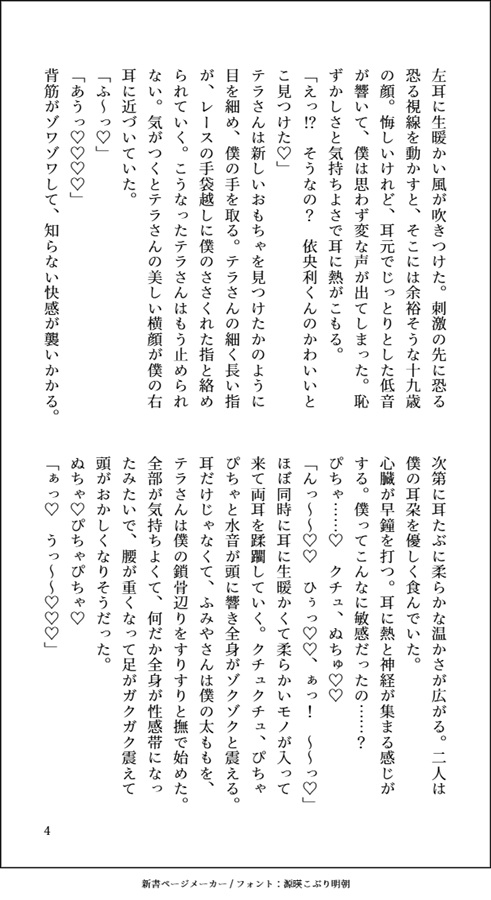 左耳に生暖かい風が吹きつけた。刺激の先に恐る
恐る視線を動かすと、そこには余裕そうな十九歳
の顔。悔しいけれど、耳元でじっとりとした低音
が響いて、僕は思わず変な声が出てしまった。恥
ずかしさと気持ちよさで耳に熱がこもる。
「えっ⁉ そうなの? 依央利くんのかわいいと
こ見つけた♡」
テラさんは新しいおもちゃを見つけたかのように
目を細め、僕の手を取る。テラさんの細く長い指
が、レースの手袋越しに僕のささくれた指と絡め
られていく。こうなったテラさんはもう止められ
ない。気がつくとテラさんの美しい横顔が僕の右
耳に近づいていた。
「ふ〜っ♡」
「あうっ♡♡♡♡」
背筋がゾワゾワして、知らない快感が襲いかかる。
次第に耳たぶに柔らかな温かさが広がる。二人は
僕の耳朶を優しく食んでいた。
心臓が早鐘を打つ。耳に熱と神経が集まる感じが
する。僕ってこんなに敏感だったの……?
ぴちゃ……♡ クチュ、ぬちゅ♡♡
「んっ〜〜♡♡ ひぅっ♡♡、ぁっ! 〜〜っ♡」
ほぼ同時に耳に生暖かくて柔らかいモノが入って
来て両耳を蹂躙していく。クチュクチュ、ぴちゃ
ぴちゃと水音が頭に響き全身がゾクゾクと震える。
耳だけじゃなくて、ふみやさんは僕の太ももを、
テラさんは僕の鎖骨辺りをすりすりと撫で始めた。
全部が気持ちよくて、何だか全身が性感帯になっ
たみたいで、腰が重くなって足がガクガク震えて
頭がおかしくなりそうだった。
ぬちゃ♡ぴちゃぴちゃ♡
「ぁっ♡ うっ〜〜♡♡♡」
4
新書ページメーカー / フォント：源暎こぶり明朝